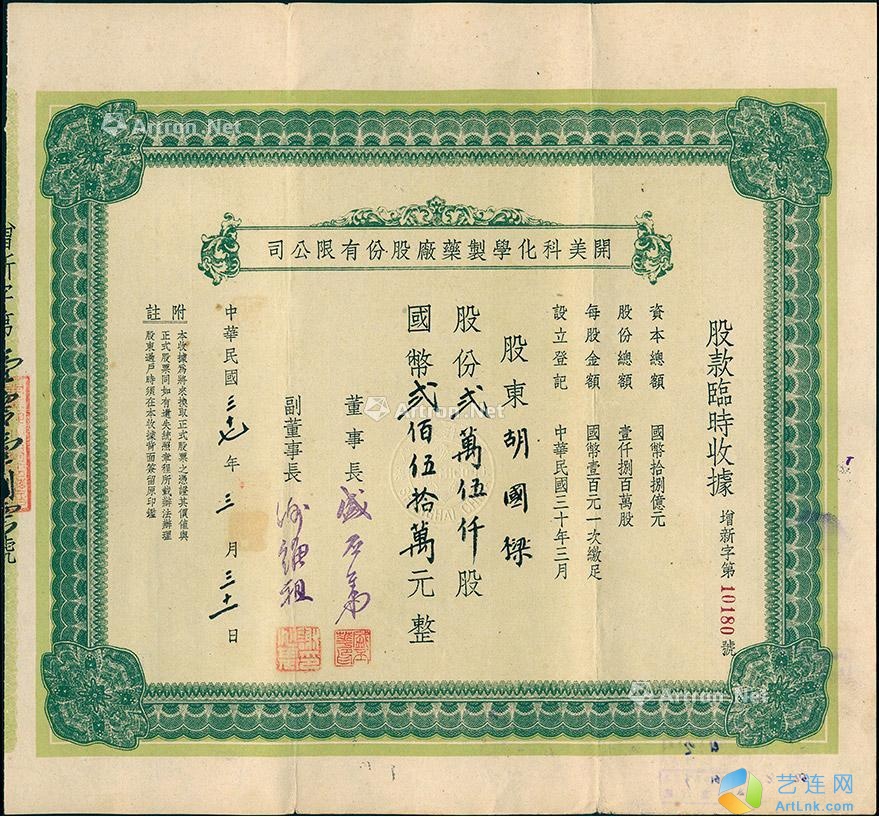 開美科化學製藥廠股份有限公司
股款臨時收據
增新字第10180號
資本總額 國幣拾捌億元
股份總額 壹仟捌百萬股
每股金額 國幣壹百元一次繳足
設立登記 中華民國三十年三月
股東胡國樑
股份貳萬伍仟股
國幣貳佰伍拾萬元整
董事長
副董事長
中華民國三七年三月三十一日
附註
本收據為將來換取正式股票之憑證其價值與
正式股票同如有遺失統照章程所載辦法辦理
股東過戶時須在本收據背面簽留原印鑑
增新字第
號
Artron.Net
Artron.Net
Artron.Net
艺连网
ArtLnk.com